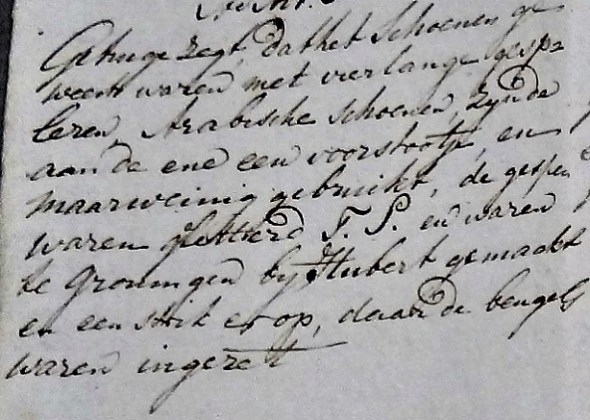 Getuige zegt, dat het Schoenen ge
weest waren met vier lange gesp=
leren, Arabische schoenen, zynde
aan de ene een voorstootje, en
maar weinig gebruikt, de gespen
waren geletterd T. S. en waren
te Groningen by Hubert gemaakt
en een strik er op, daar de beugels
waren ingezet